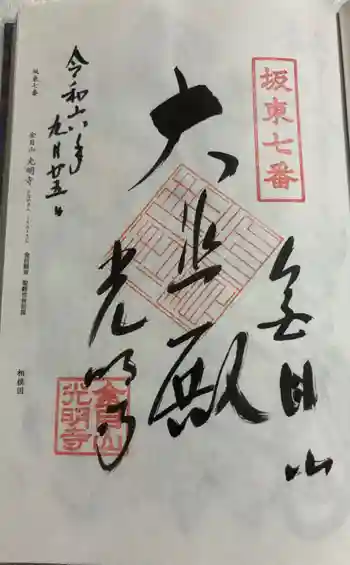 坂東七番
金目山
大悲殿
光明寺
金目山
光明寺
令和六年
九月廿五日
坂東七番
金目山 光明寺
相模国